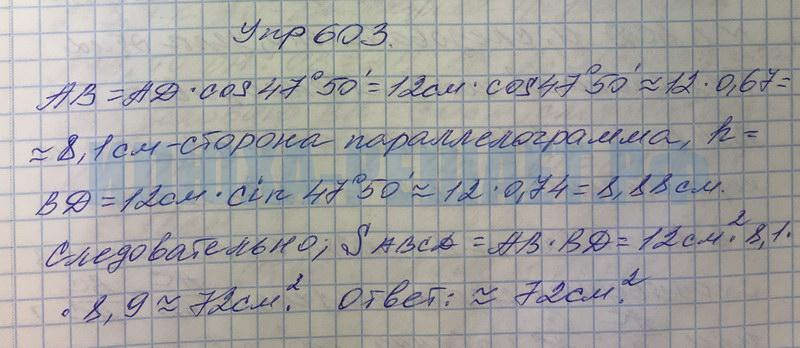 Упр 603.
AB = AD · cos 47°50' = 12см · cos 47°50' ≈ 12 · 0,67 =
≈ 8,1 см - сторона параллелограмма, h =
BD = 12см · sin 47°50' ≈ 12 · 0,74 = 8,88 см.
Следовательно; SABCD = AB · BD = 12см². 8,1 ·
· 8,9 ≈ 72см². Ответ: ≈ 72см².